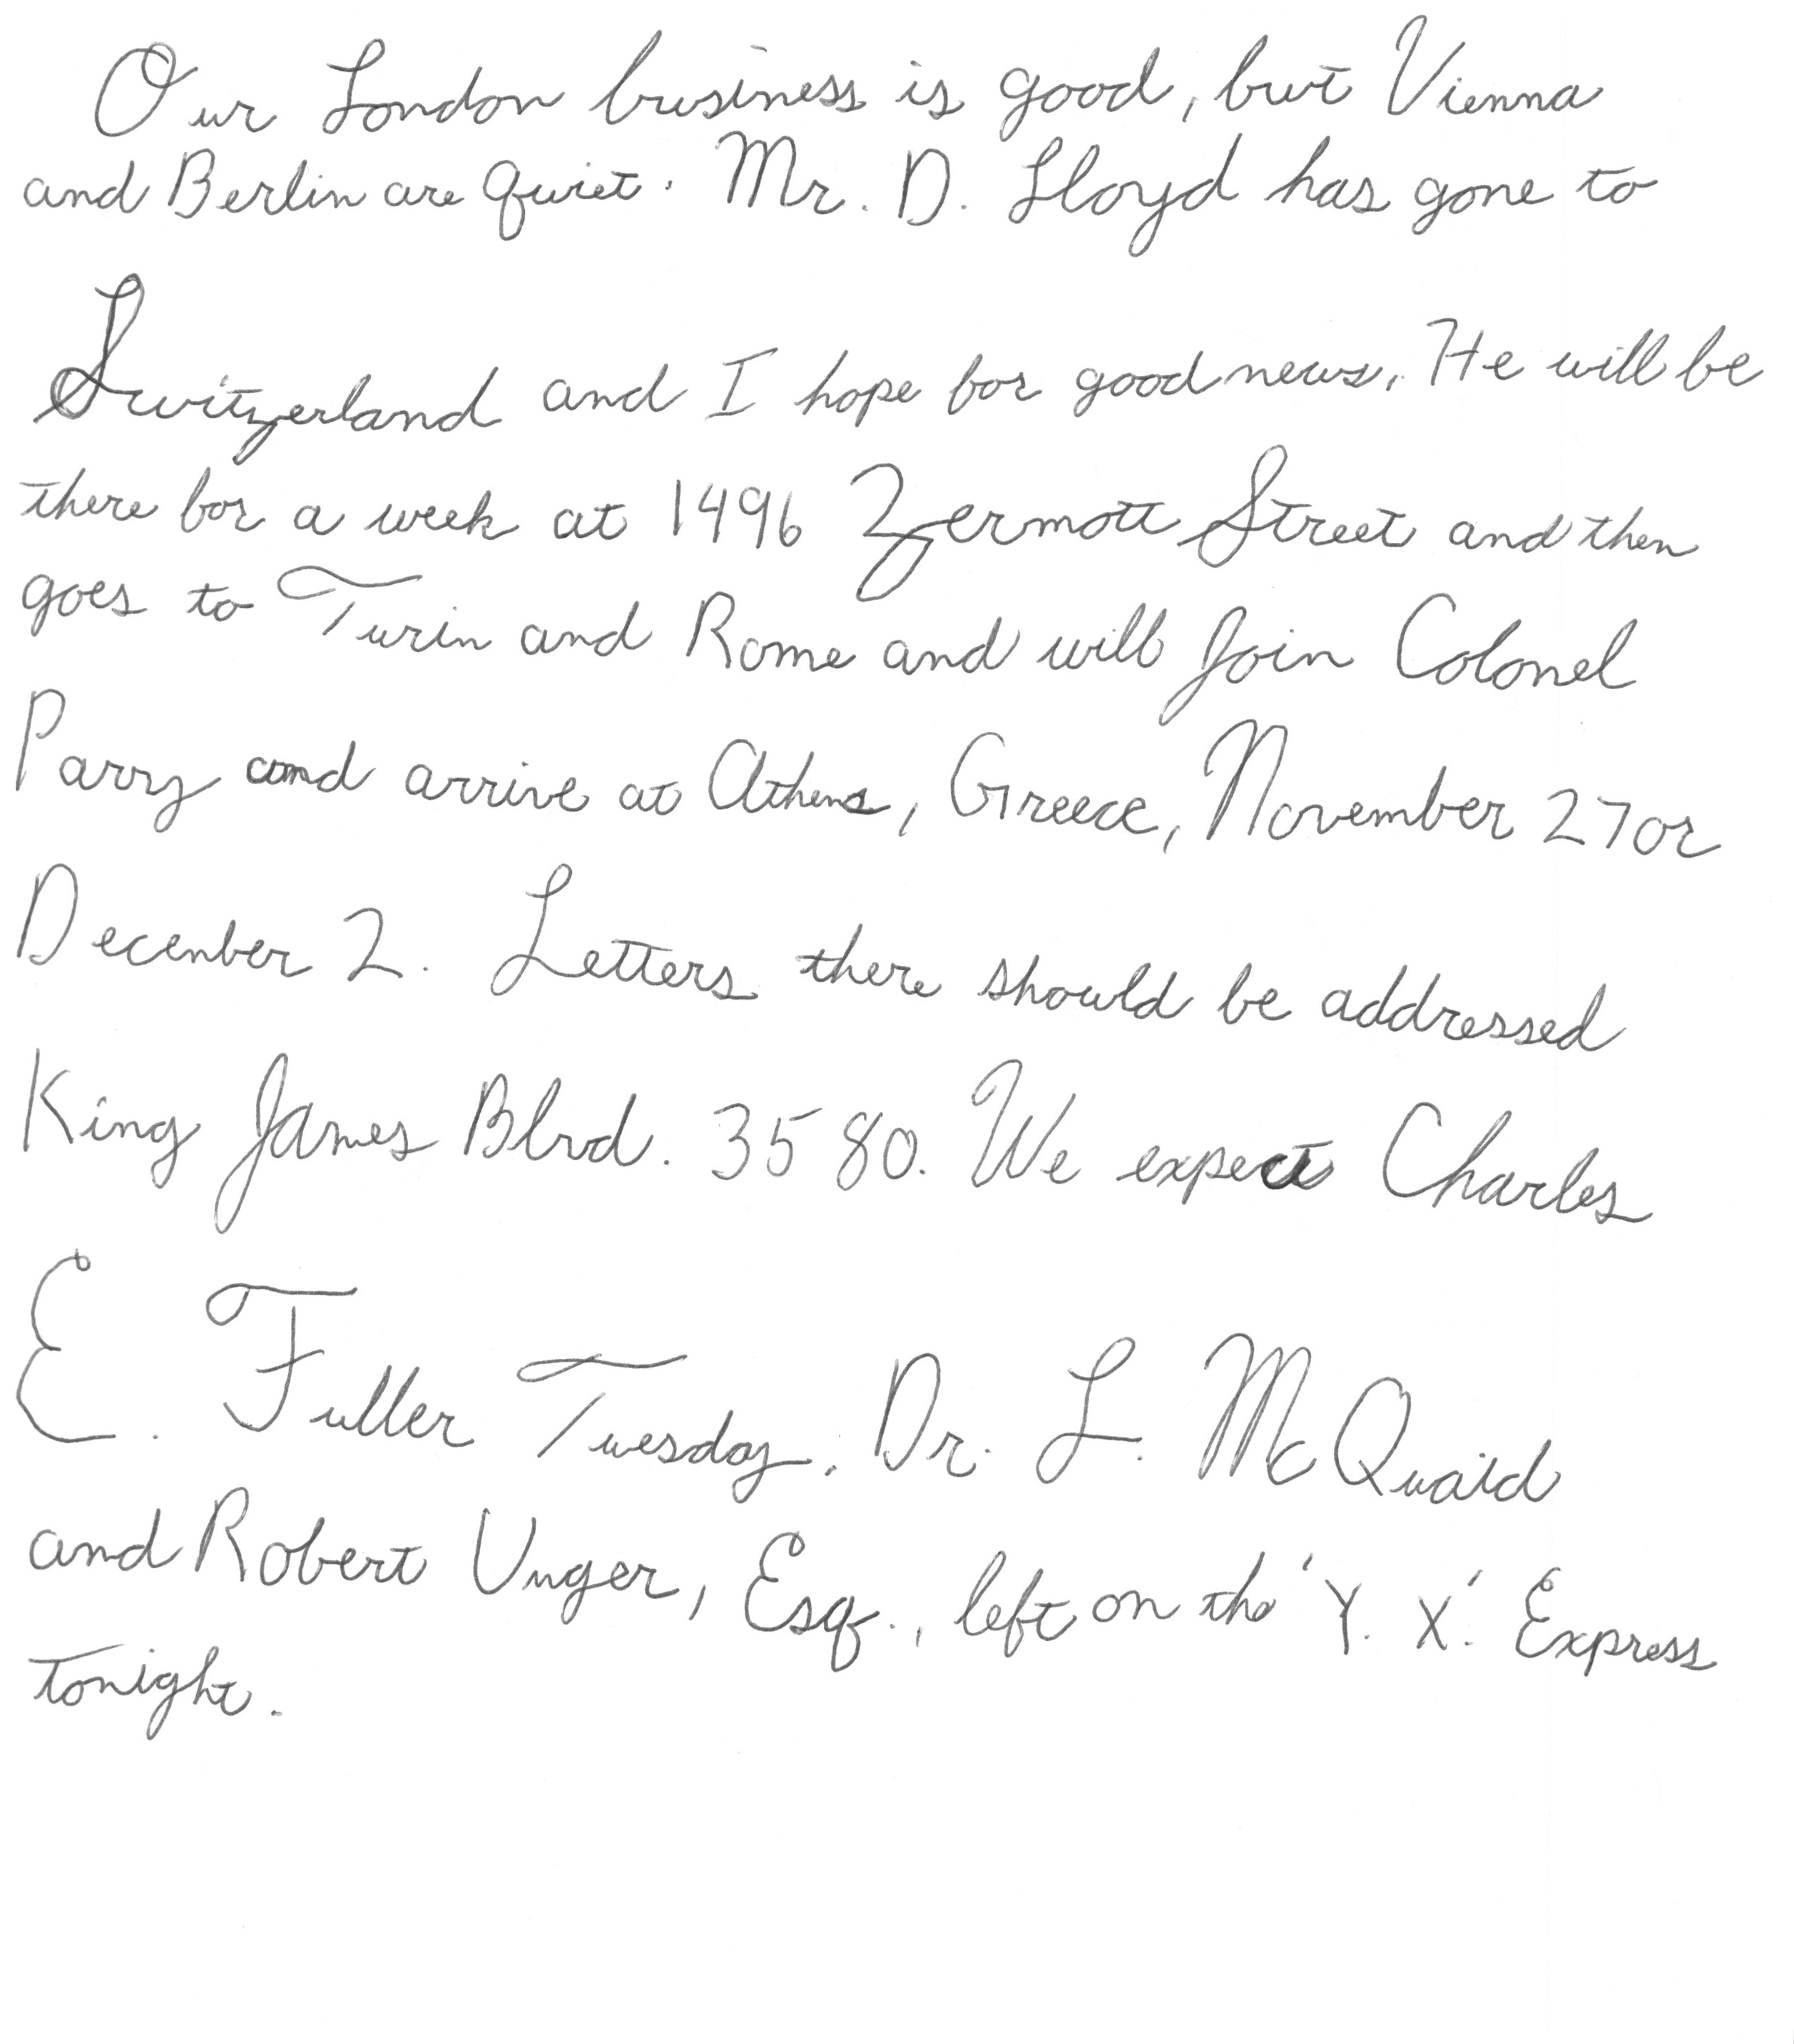 Our London business is good, but Vienna
and Berlin are quiet. Mr. D. Lloyd has gone to
Switzerland and I hope for good news. He will be
there for a week at 1496 Zermott Street and then
goes to Turin and Rome and will join Colonel
Parry and arrive at Athens, Greece, November 27 or
December 2. Letters there should be addressed
King James Blvd. 3580. We expect Charles
E. Fuller Tuesday. Dr. L. McQuaid
and Robert Unger, Esq., left on the 'Y. X.' Express
tonight.